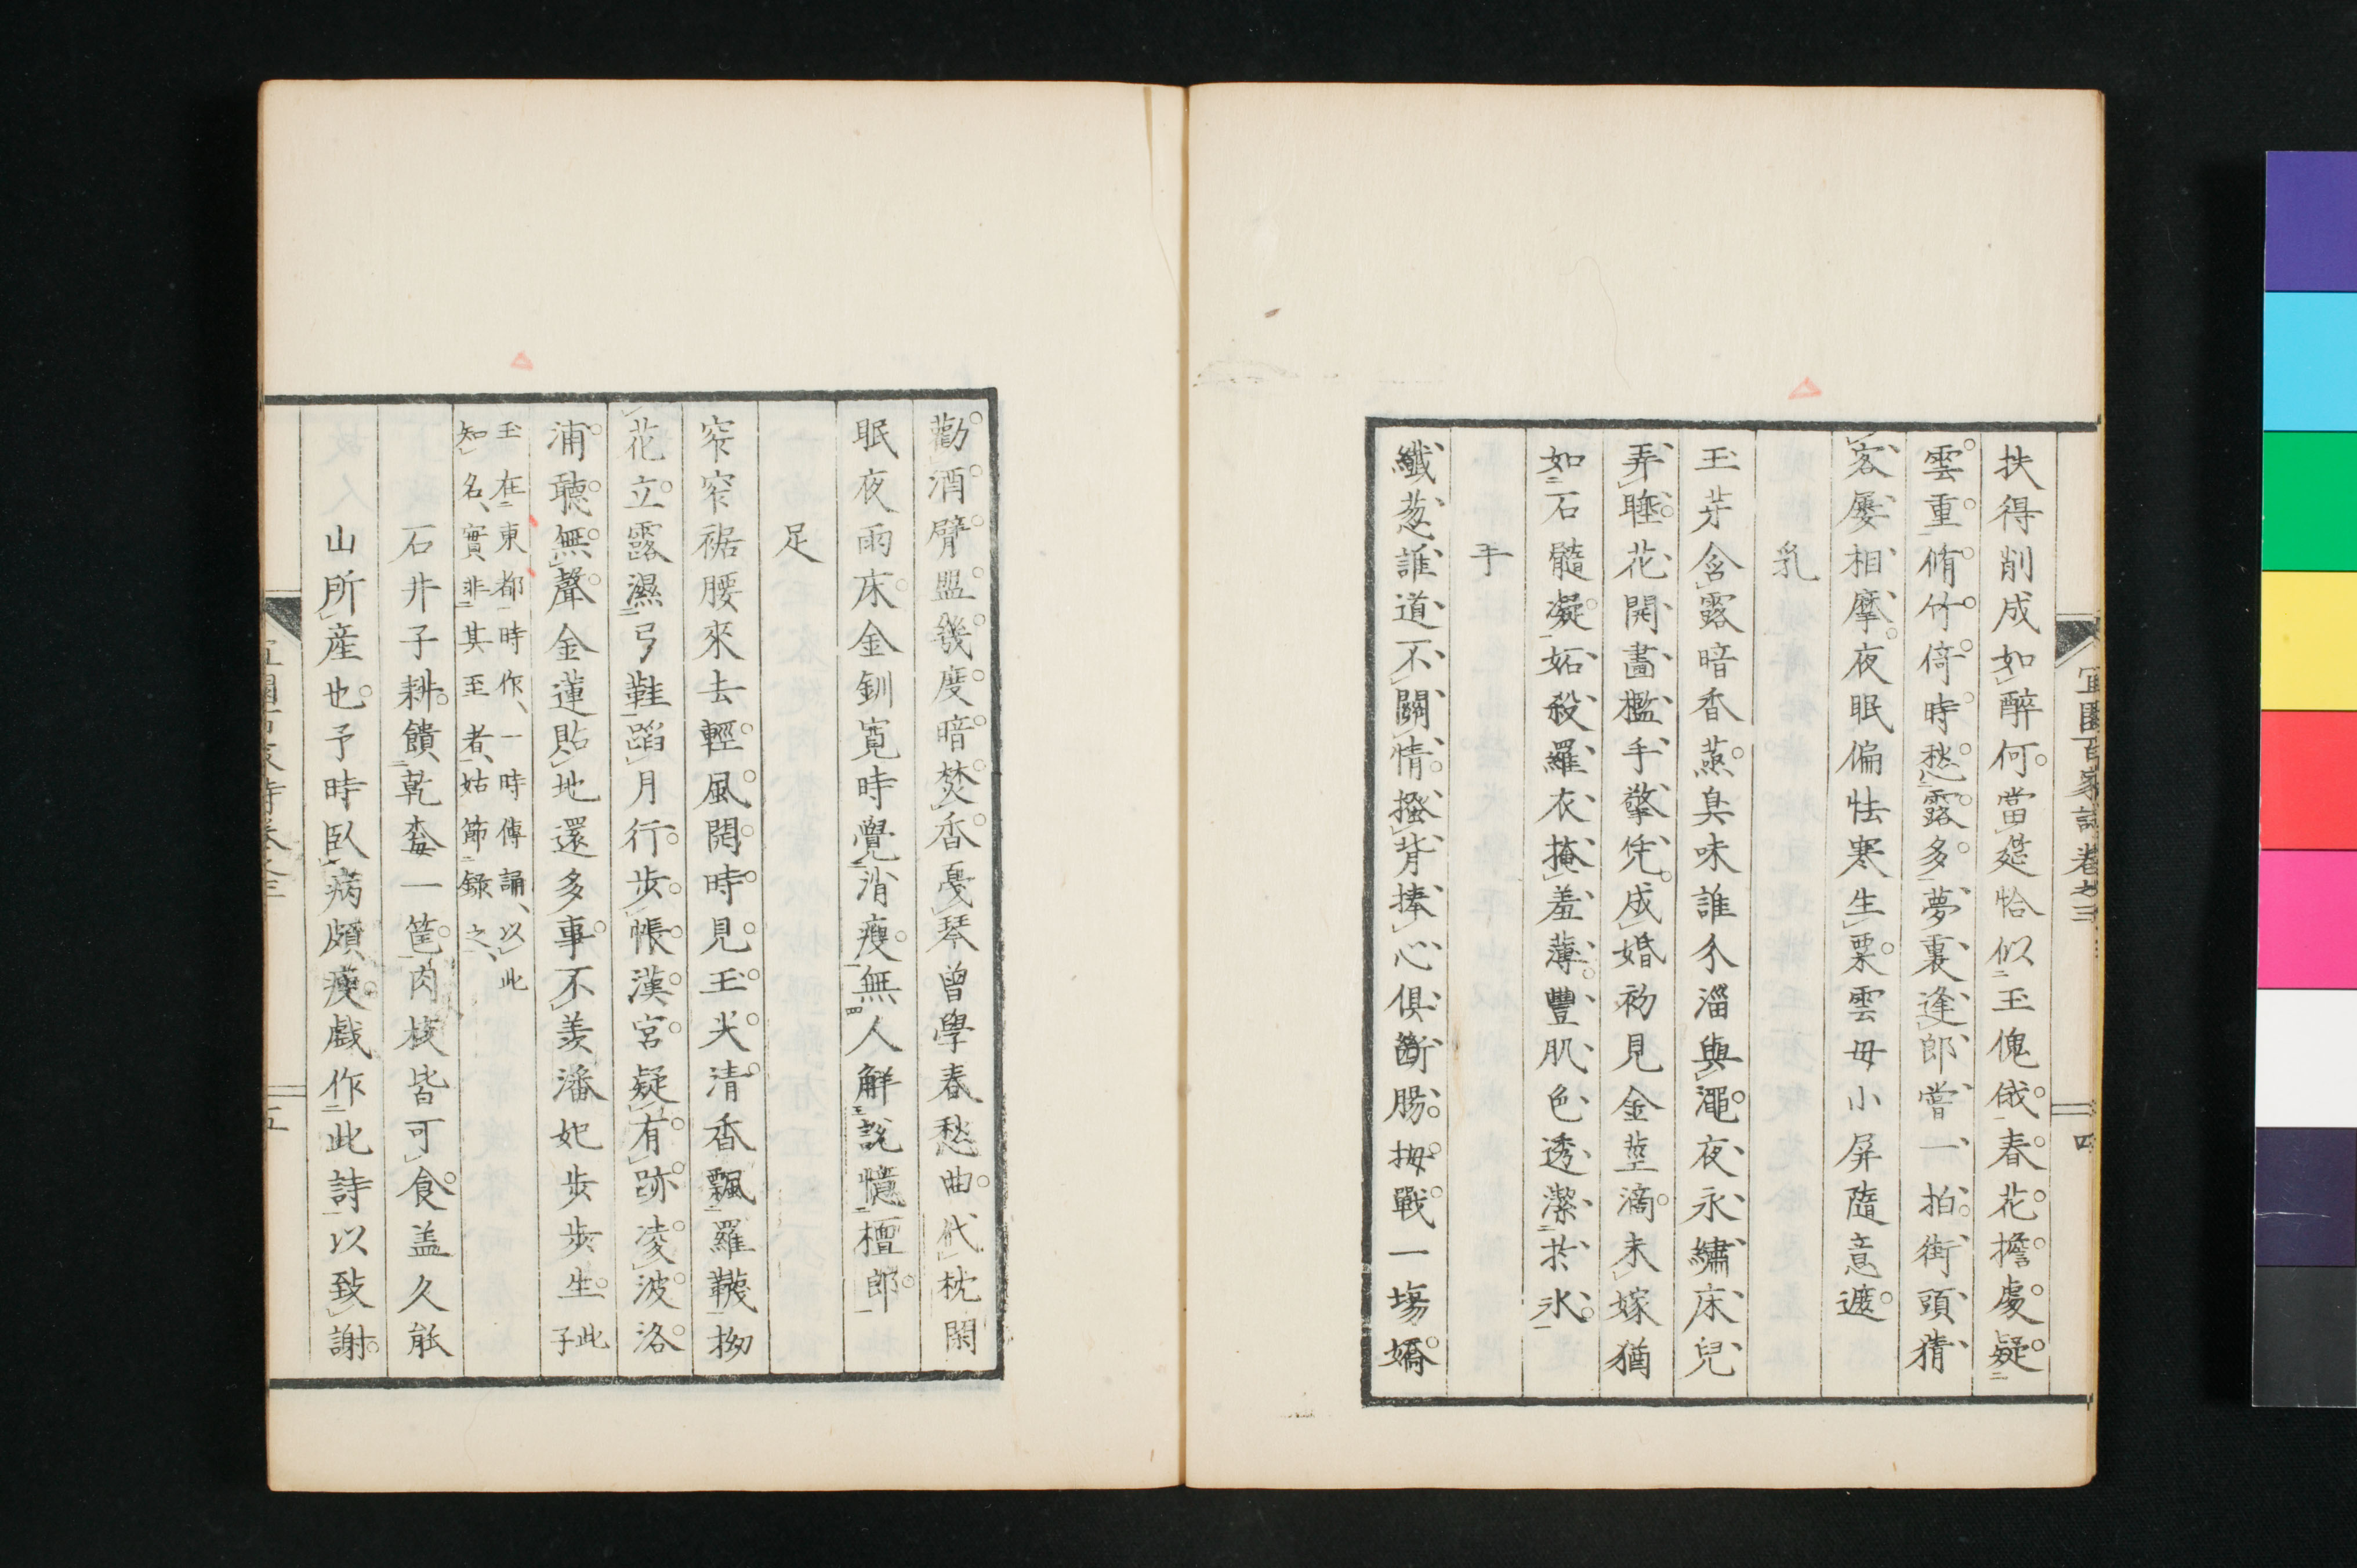 宜園百家詩卷之三
四
扶得削成如醉何當筵恰似玉傀俄春花擔處疑
雲重脩竹倚時愁露多夢裏逢郎嘗一拍街頭猜
客屡相摩夜眠偏怯寒生粟雲母小屏隨意遮
乳
玉芽含露暗香蒸臭味誰分淄與澠夜永繡床兒
弄睡花開畵檻手擎凭成婚初見金莖滴未嫁猶
如石髓凝妬殺羅衣掩羞薄豐肌色透潔於氷
手
纖葱誰道不關情搔背捧心倶斷腸拇戰一場嬌
勸酒臂盟幾度暗焚香戞琴曾學春愁曲代枕閑
眠夜雨床金釧寛時覺消瘦無人解說憶檀郎
足
窄窄裾腰來去輕風開時見玉尖清香飄羅韈拗
花立露濕弓鞋蹈月行步帳漢宮疑有跡凌波洛
浦聽無聲金蓮貼地還多事不羨潘妃步步生此子
玉在東都時作一時傳誦以此
知名實非其至者姑節錄之
石井子耕饋乾棗一筐肉核皆可食盖久能
山所產也予時臥病頗痩戲作此詩以致謝
宜園百家詩卷之三
五